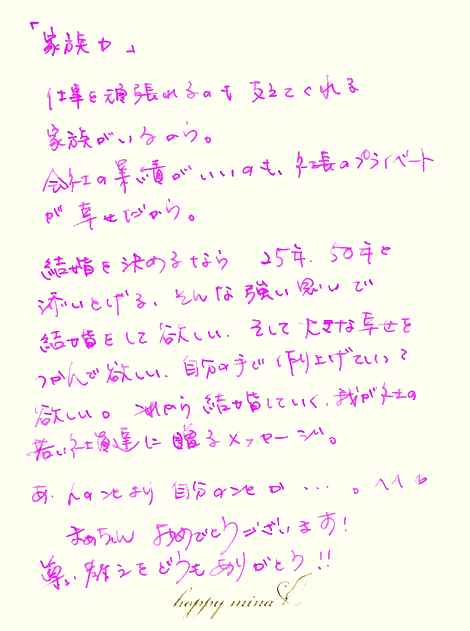 「家族力」
仕事を頑張れるのも支えてくれる
家族がいるから。
会社の業績がいいのも、社長のプライベート
が幸せだから。
結婚を決めるなら 25年、50年と
添いとげる、そんな強い思いで
結婚をして欲しい。そして大きな幸せを
つかんで欲しい。自分の手で作り上げていって
欲しい。これから結婚していく、我が社の
若い社員達に贈るメッセージ。
あ、人のことより自分のことか…。へへ
まめちゃん おめでとうございます!
尊い教えをどうもありがとう!!
hoppy mina